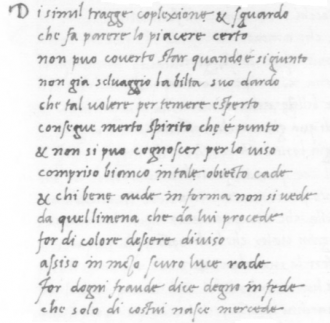 Di simil tragge coplexione & sguardo
che fa parere lo piacere certo
non puo coverto star quando è sigiunto
non gia selvaggio la bilta suo dardo
che tal volere per temere esperto
consegue merto spirito che è punto
& non si puo cognoscer per lo viso
compriso bianco in tale obiecto cade
& chi bene aude in forma non si vede
da quel limena che da lui procede
for di colore dessere diviso
assiso in mezo scuro luce rade
for dogni fraude dice degno in fede
che solo di costui nasce mercede